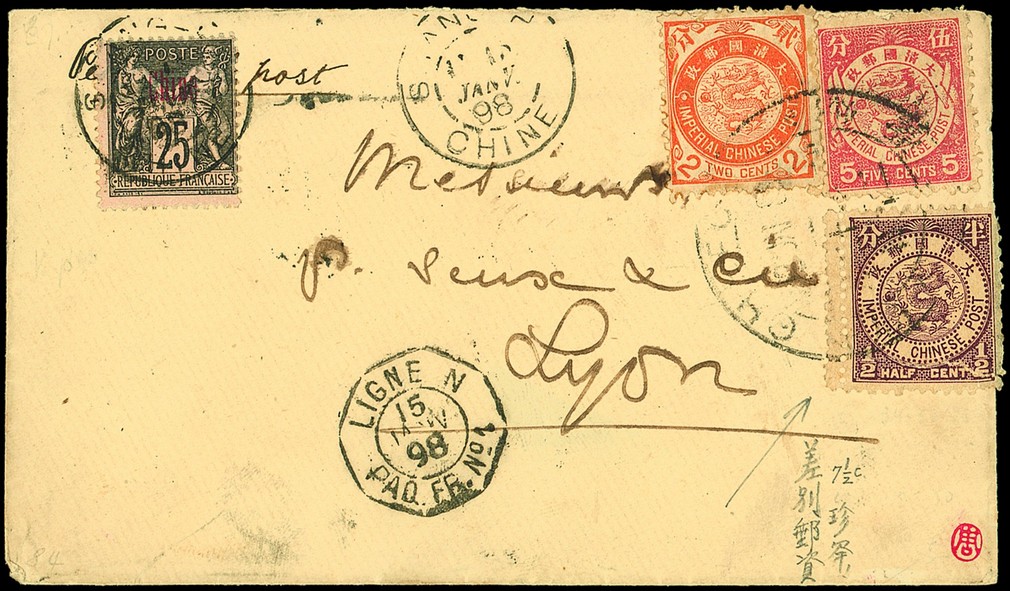 POSTE
Chine
25
RÉPUBLIQUE FRANÇAISE
post
JANV
98
CHINE
分 貳
大清國郵政
IMPERIAL CHINESE POST
2 2
TWO CENTS
分 伍
大清國郵政
IMPERIAL CHINESE POST
5 5
FIVE CENTS
分 半
大清國郵政
IMPERIAL CHINESE POST
1/2 1/2
HALF CENT
Messieurs
P. & Cie
Lyon
LIGNE N
15
JANV
98
PAQ. FR. Nº 1
7½c
珍罕
差別郵資
84